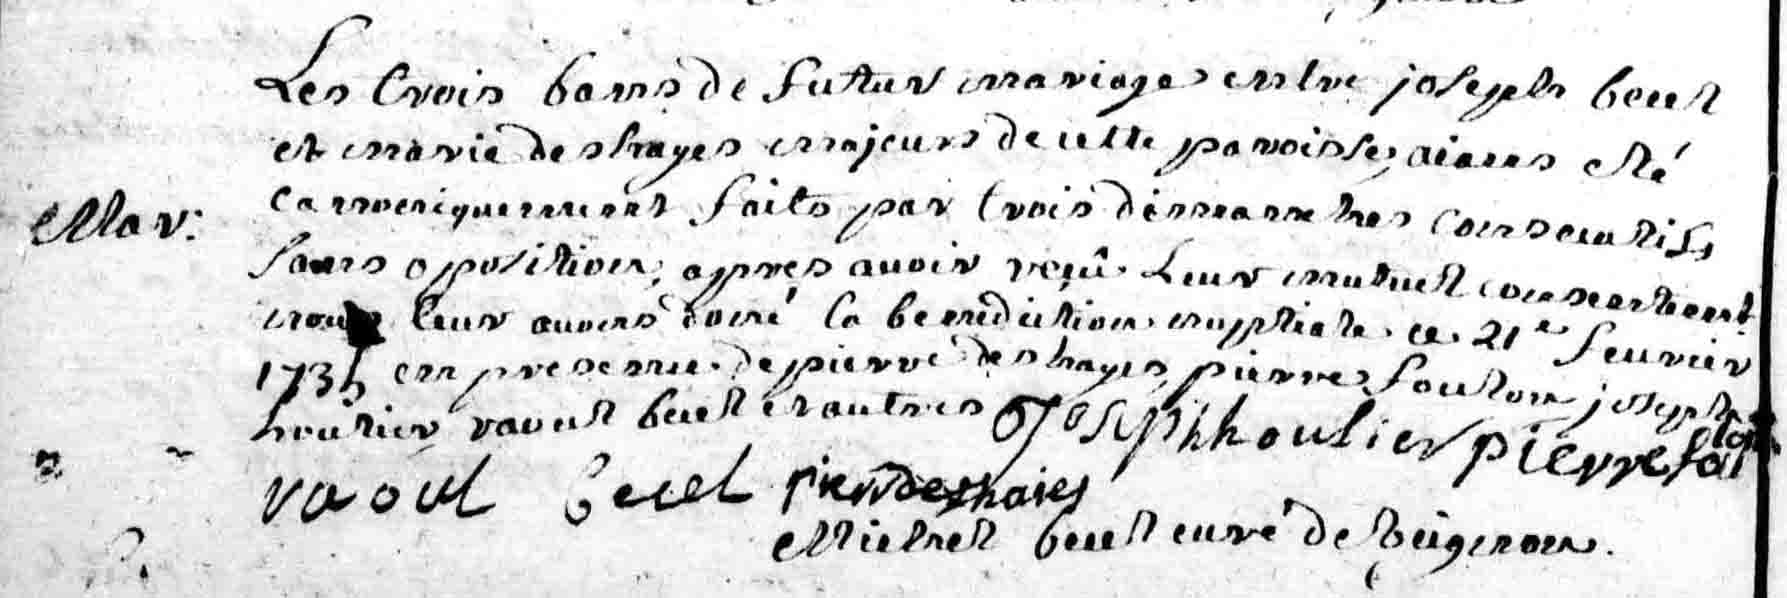 Les trois bans de futur mariage entre joseph becel
et marie deshayes majeurs de cette paroisse, aians esté
Mar: canoniquement faits par trois dimanches consecutifs
sans oposition, apres avoir reçû leur mutuel consentement
nous leur avons doné la benediction nuptiale ce 21e feuvrier
1735 en presence de pierre deshayes, pierre fouton joseph
houlier raoul becel et autres Joseph houlier pierre fot
raoul becel pierre deshaies
Michel becel curé de beignon.